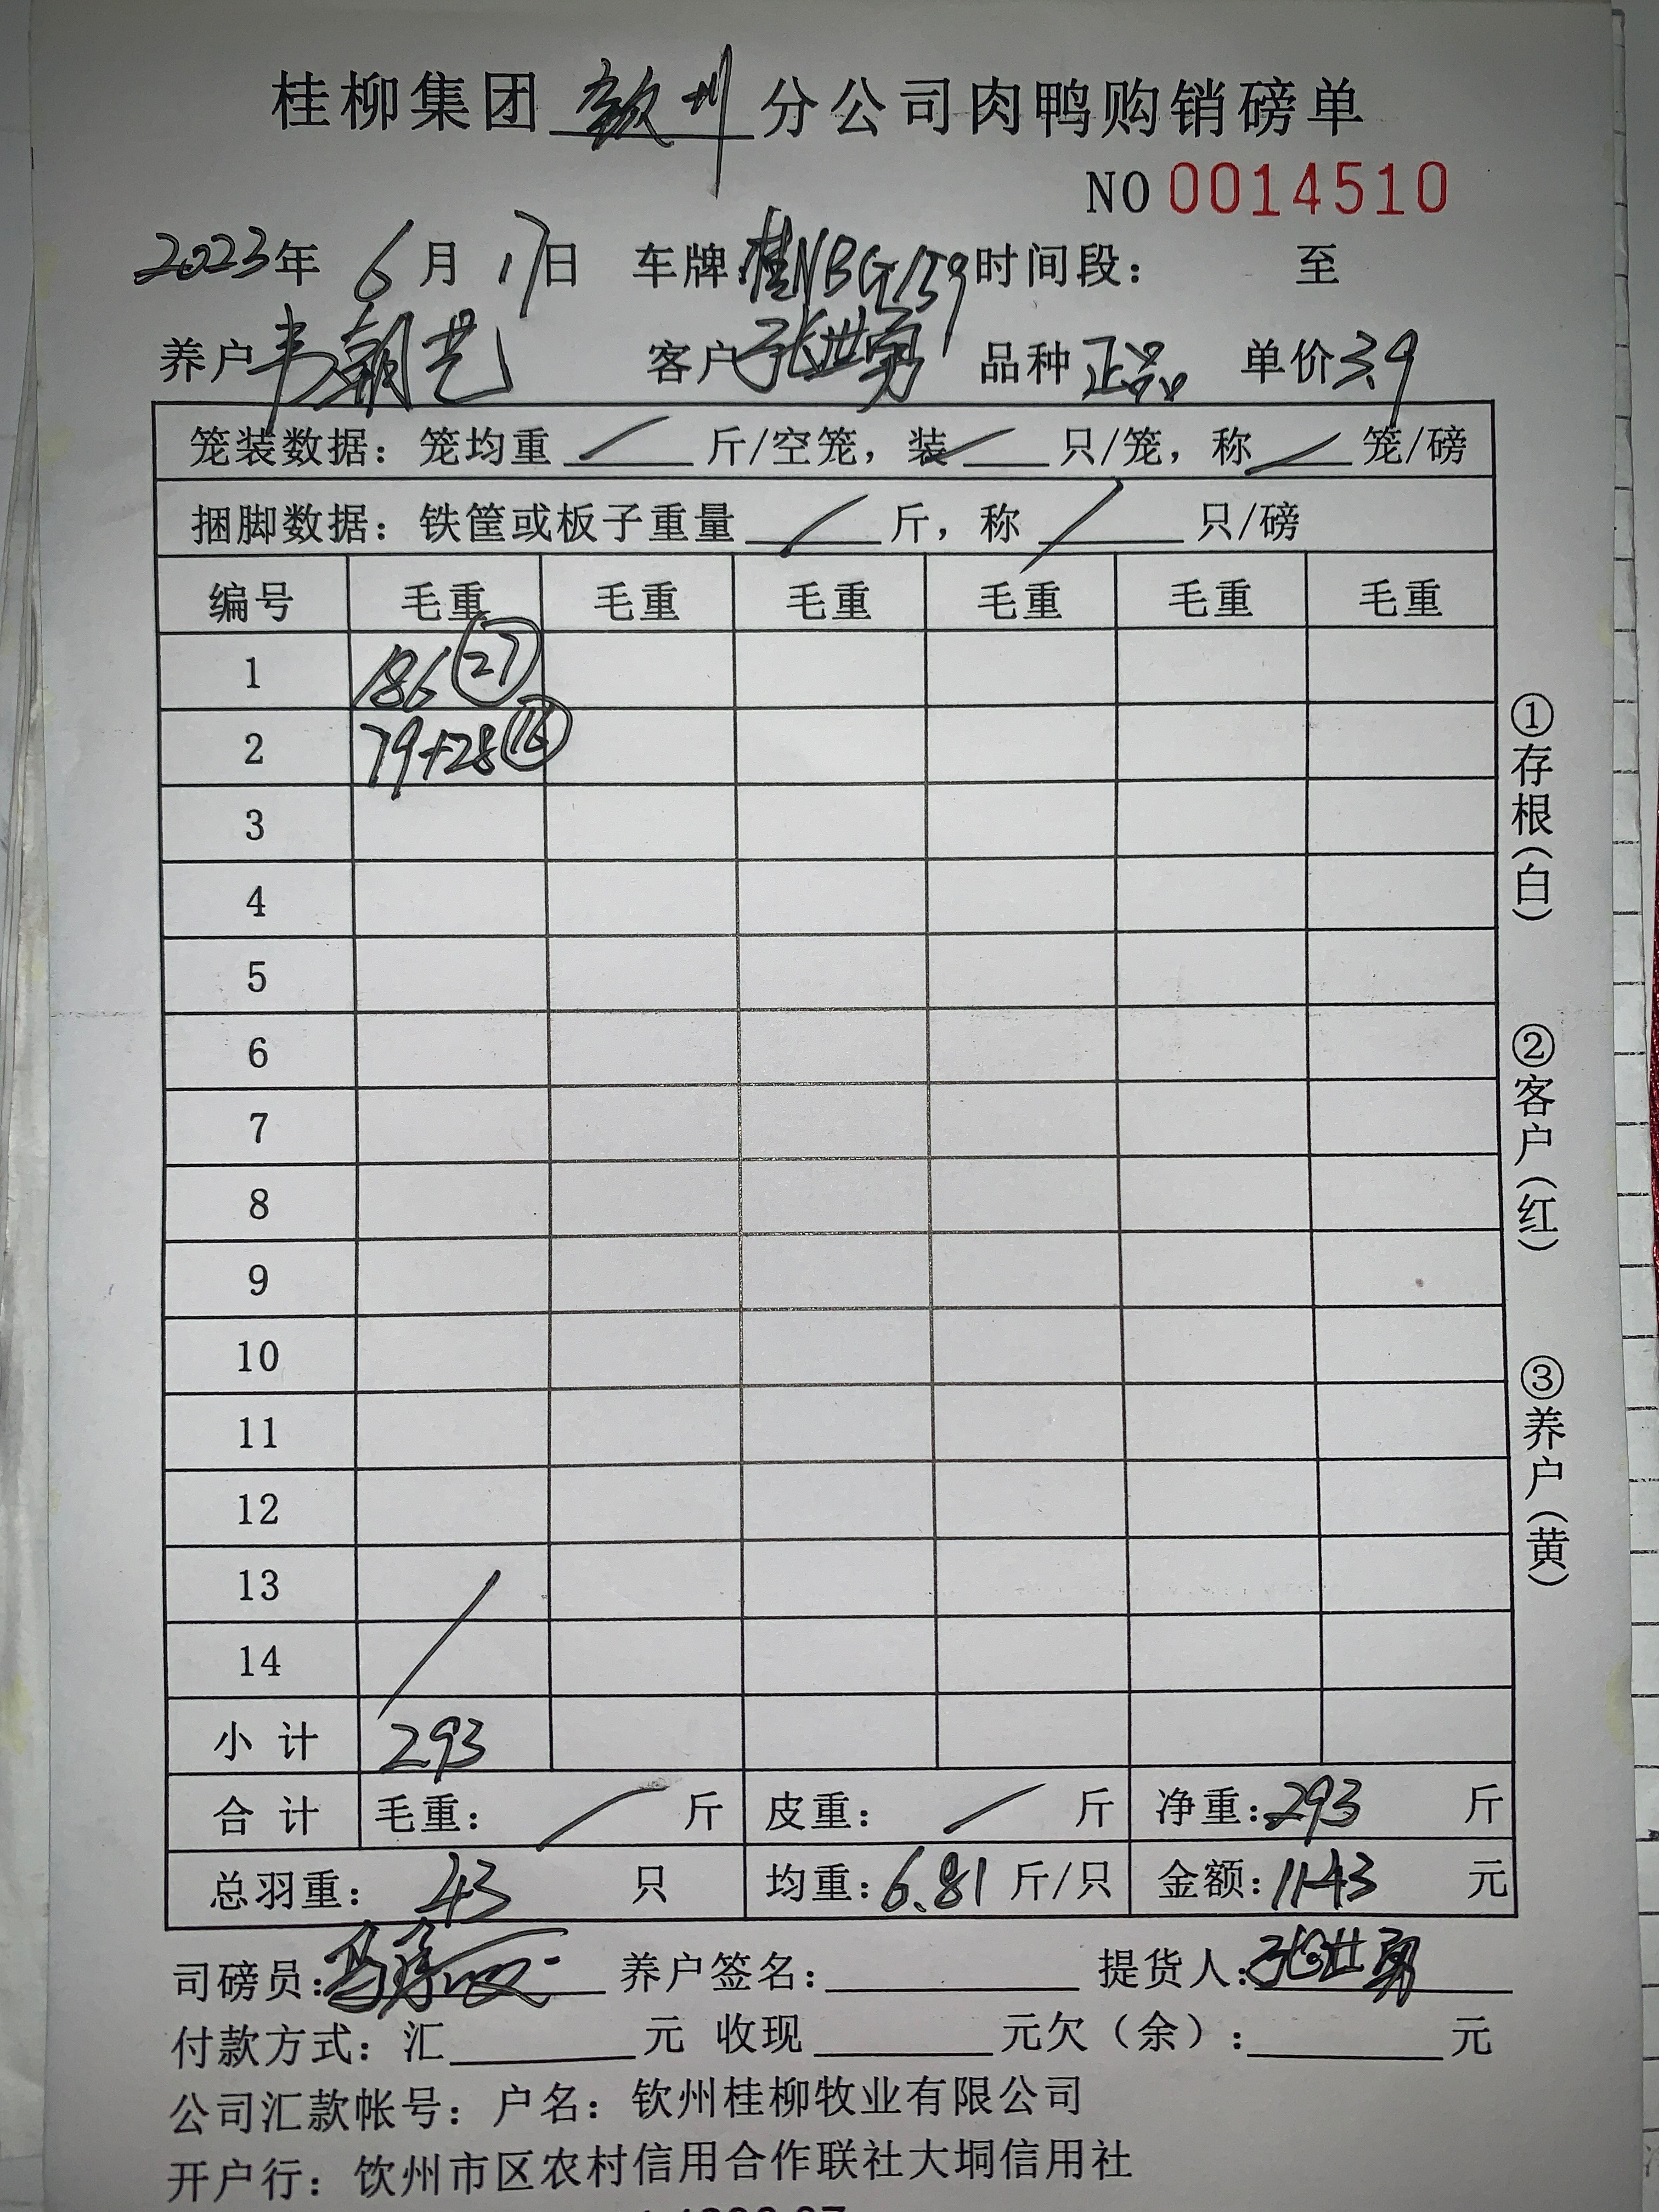 桂柳集团 钦州 分公司肉鸭购销磅单
NO 0014510
2023年 6月 17日 车牌:桂NBG159 时间段: 至
养户 韦朝艺 客户 张世勇 品种 正品 单价 3.9
笼装数据: 笼均重 / 斤/空笼, 装 / 只/笼, 称 / 笼/磅
捆脚数据: 铁筐或板子重量 / 斤, 称 / 只/磅
编号 毛重 毛重 毛重 毛重 毛重 毛重
1 186 ㉗
2 79+28 ⑯
3
4
5
6
7
8
9
10
11
12
13
14
小计 293
合计 毛重: / 斤 皮重: / 斤 净重: 293 斤
总羽重: 43 只 均重: 6.81 斤/只 金额: 1143 元
司磅员: 养户签名: 提货人: 张世勇
付款方式: 汇 元 收现 元欠(余): 元
公司汇款帐号: 户名: 钦州桂柳牧业有限公司
开户行: 钦州市区农村信用合作联社大垌信用社
①存根(白)
②客户(红)
③养户(黄)